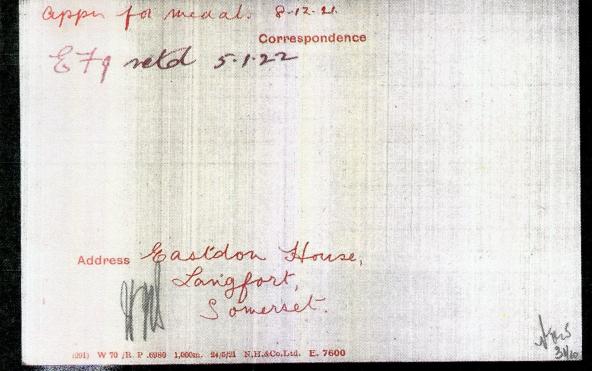 Appn for medal. 8-12-21.
Correspondence
EF9 retd 5-1-22
Address Eastdon House,
Langfort,
Somerset.
(991) W 70 /R. P .6980 1,000m. 24/5/21 N.H.&Co.Ltd. E. 7600